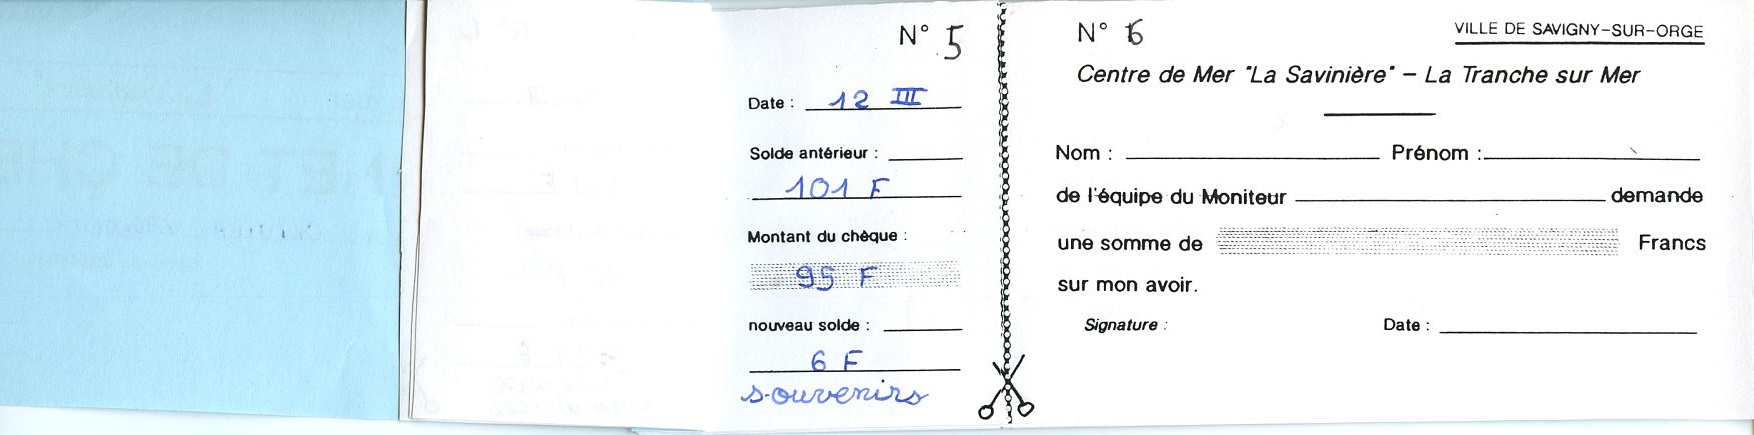 N° 5
Date : 12 III
Solde antérieur :
101 F
Montant du chèque :
95 F
nouveau solde :
6 F
souvenirs
N° 6
VILLE DE SAVIGNY-SUR-ORGE
Centre de Mer "La Savinière" - La Tranche sur Mer
Nom : Prénom :
de l'équipe du Moniteur demande
une somme de Francs
sur mon avoir.
Signature : Date :